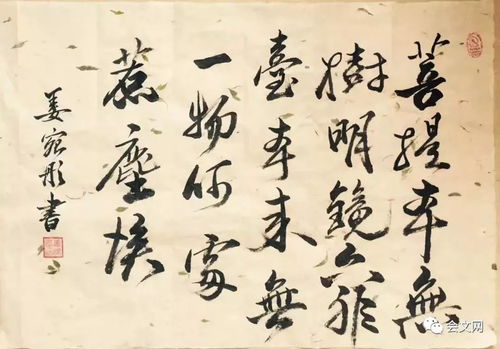 菩提本無
樹明鏡亦非
臺本来無
一物何處
惹塵埃
姜宛彤書
会文网